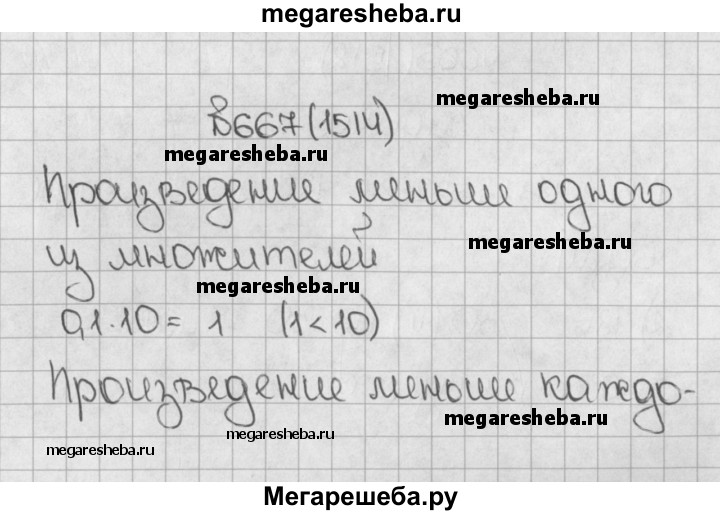 megaresheba.ru
megaresheba.ru
№667(1514)
megaresheba.ru
Произведение меньше одного
megaresheba.ru
из множителей
megaresheba.ru
0,1·10= 1 (1<10)
Произведение меньше каждо-
megaresheba.ru
megaresheba.ru
megaresheba.ru
Мегарешеба.ру